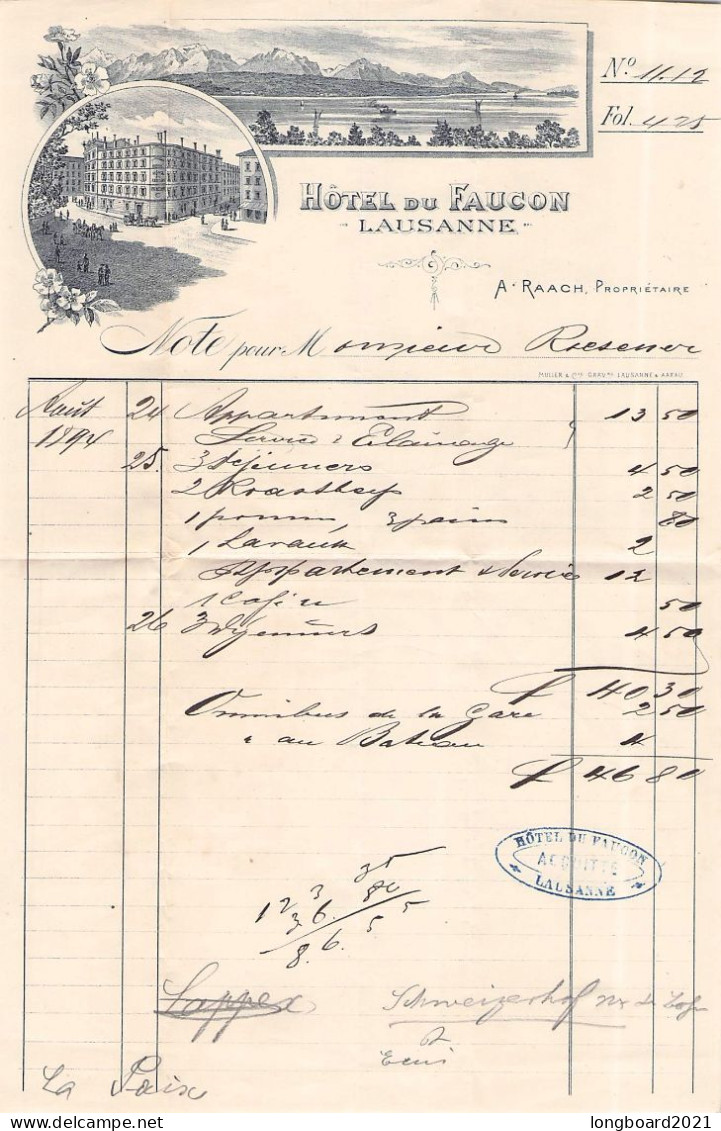 Nº 11.12
Fol. 425
HÔTEL DU FAUCON
LAUSANNE
A. RAACH, PROPRIÉTAIRE
Note pour Monsieur
MÜLLER & LAUSANNE & AARAU
Août 24 Appartement 13 50
1894 Service & Eclairage
25. 3 déjeuners 4 50
2 Roastbeef 2 50
1 pomm, 3 pain 80
1 Lavaux 2
Appartement & Service 12
1 50
26 3 déjeuners 4 50
f 40 30
Omnibus de la Gare 2 50
" au Bateau 4
f 46 80
HÔTEL DU FAUCON
ACQUITTÉ
LAUSANNE
Schweizerhof
La Paix
longboard2021